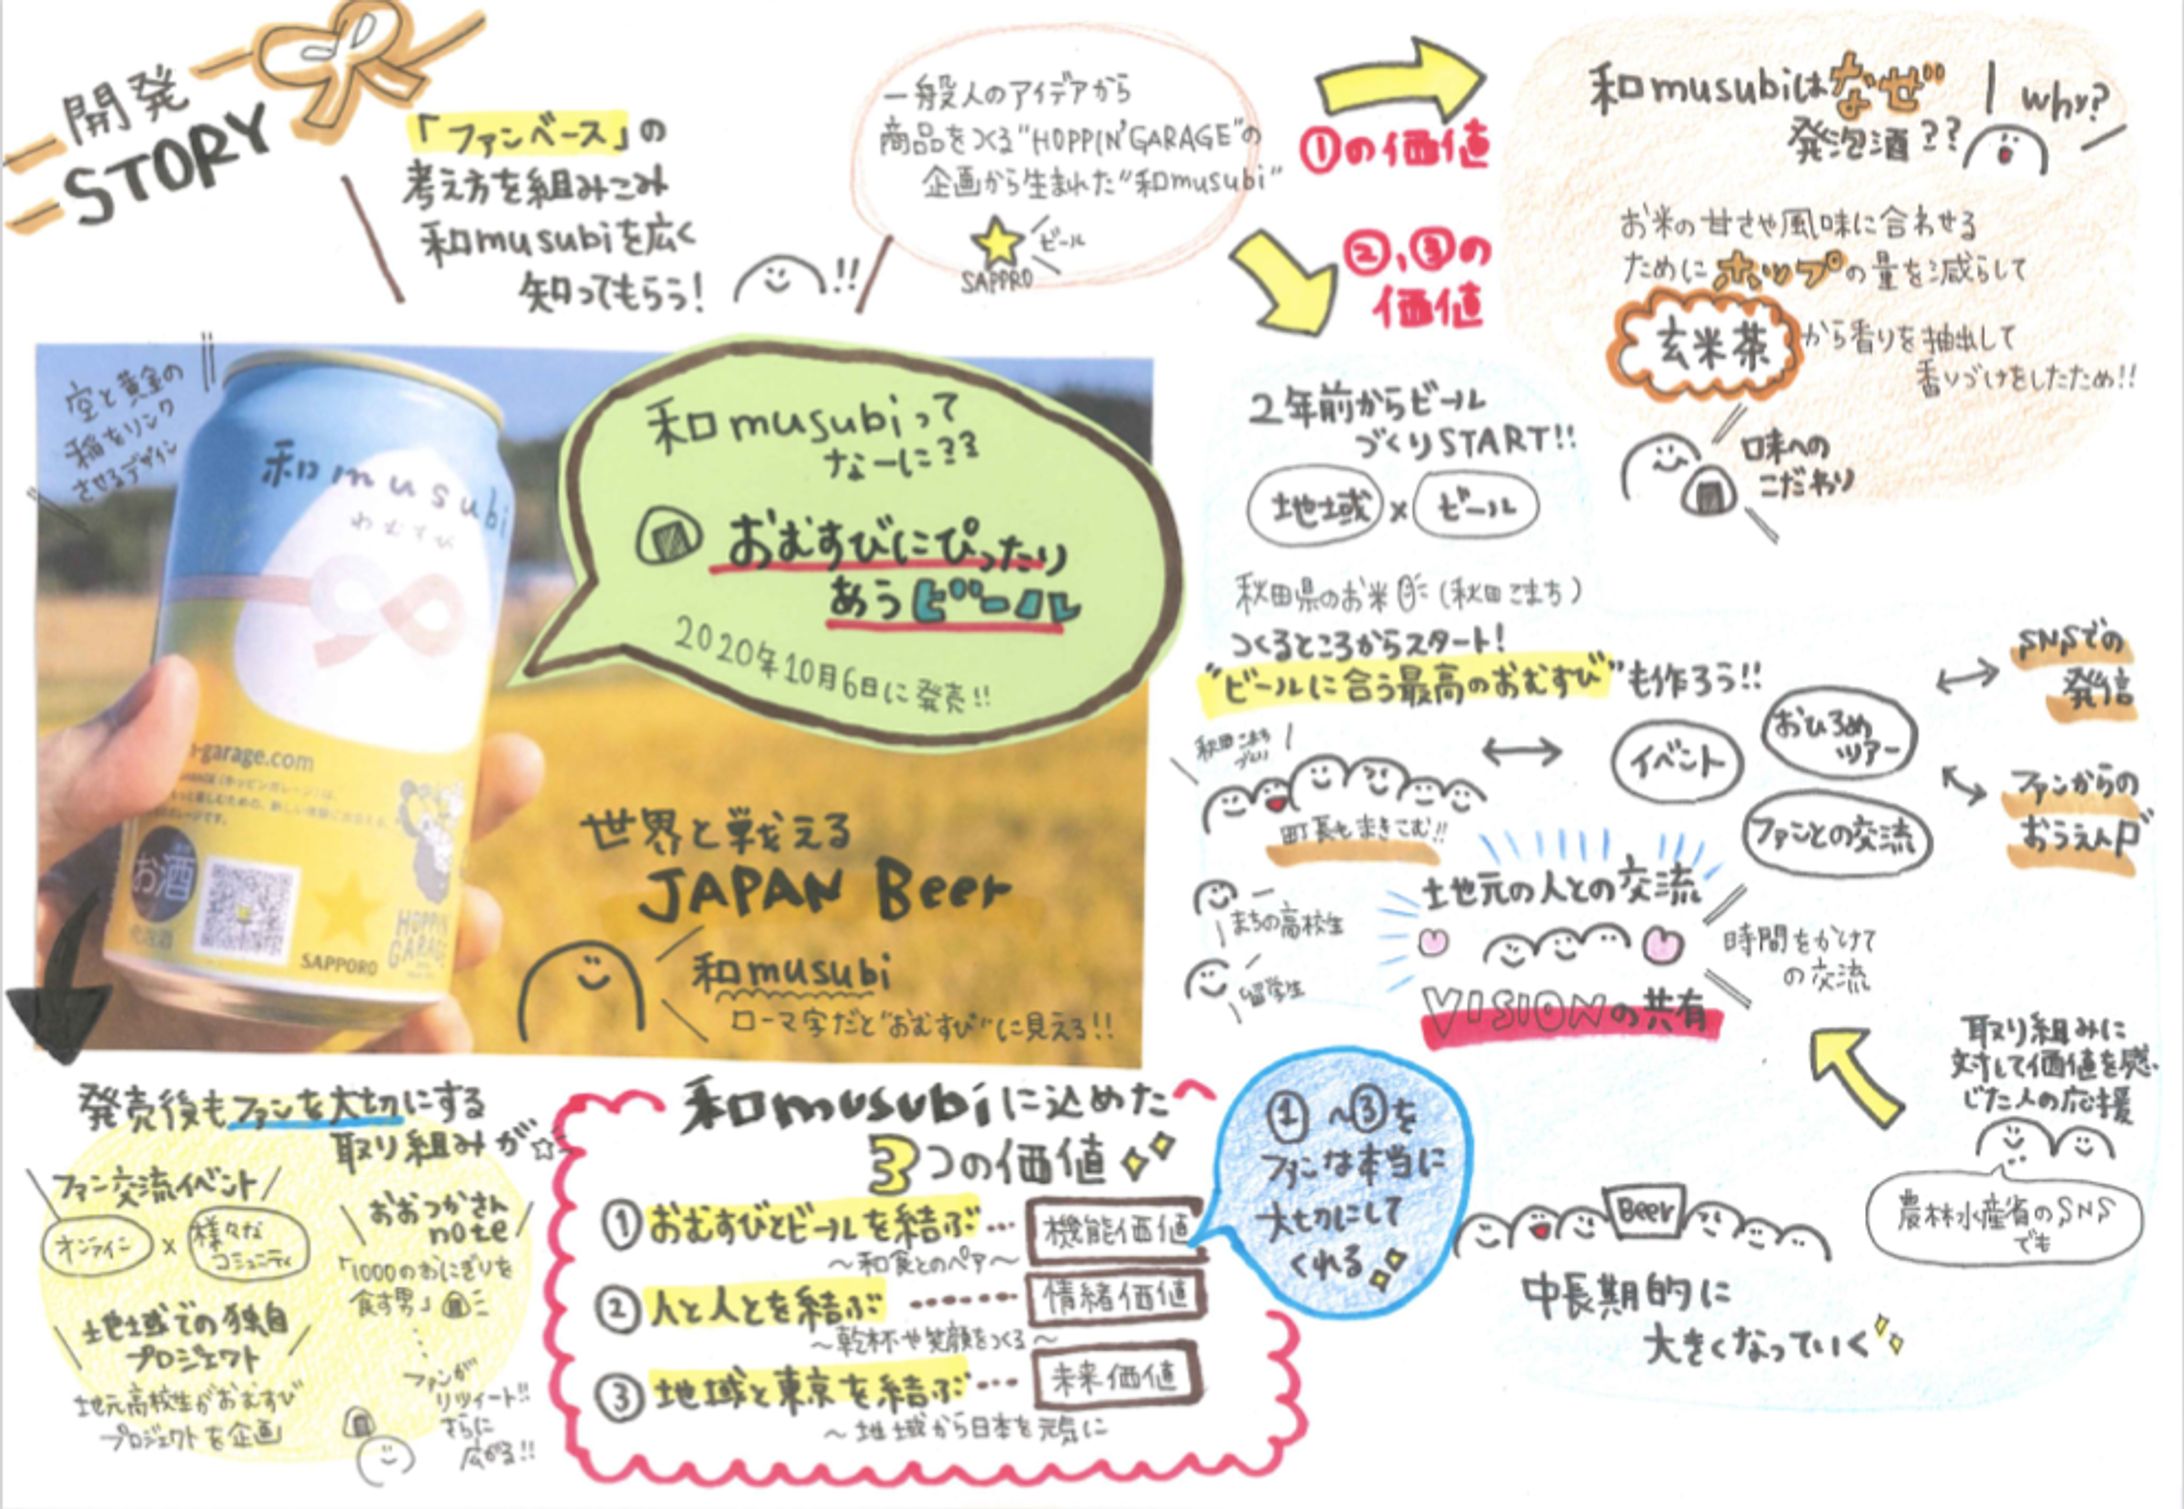 開発
STORY
「ファンベース」の
考え方を組みこみ
和musubiを広く
知ってもらう!
!!
一般人のアイデアから
商品をつくる"HOPPIN'GARAGE"の
企画から生まれた"和musubi"
ビール
SAPPRO
①の価値
②、③の
価値
和musubiはなぜ
発泡酒??
why?
お米の甘さや風味に合わせる
ためにホップの量を減らして
玄米茶から香りを抽出して
香りづけをしたため!!
味への
こだわり
空と黄金の
稲をリンク
させるデザイン
和musubi
わむすび
-garage.com
お酒
SAPPORO
HOPPIN'
GARAGE
和musubiって
なーに??
おむすびにぴったり
あうビール
2020年10月6日に発売!!
世界と戦える
JAPAN Beer
和musubi
ローマ字だと"おむすび"に見える!!
2年前からビール
づくりSTART!!
地域×ビール
秋田県のお米(秋田こまち)
つくるところからスタート!
"ビールに合う最高のおむすび"も作ろう!!
秋田こまち
づくり
町長もまきこむ!!
イベント
おひろめ
ツアー
ファンとの交流
SNSでの
発信
ファンからの
おうえん
まちの高校生
留学生
土地元の人との交流
VISIONの共有
時間をかけて
の交流
取り組みに
対して価値を感
じた人の応援
農林水産省のSNS
でも
Beer
中長期的に
大きくなっていく
発売後もファンを大切にする
取り組みが
ファン交流イベント
オンライン×様々な
コミュニティ
おおつかさん
note
「1000のおにぎりを
食す男」
ファンが
リツイート!!
さらに
広がる!!
地域での独自
プロジェクト
地元高校生がおむすび
プロジェクトを企画
和musubiに込めた
3つの価値
①おむすびとビールを結ぶ…機能価値
～和食とのペア～
②人と人とを結ぶ……情緒価値
～乾杯や笑顔をつくる～
③地域と東京を結ぶ…未来価値
～地域から日本を元気に
①~③を
ファンは本当に
大切にして
くれる